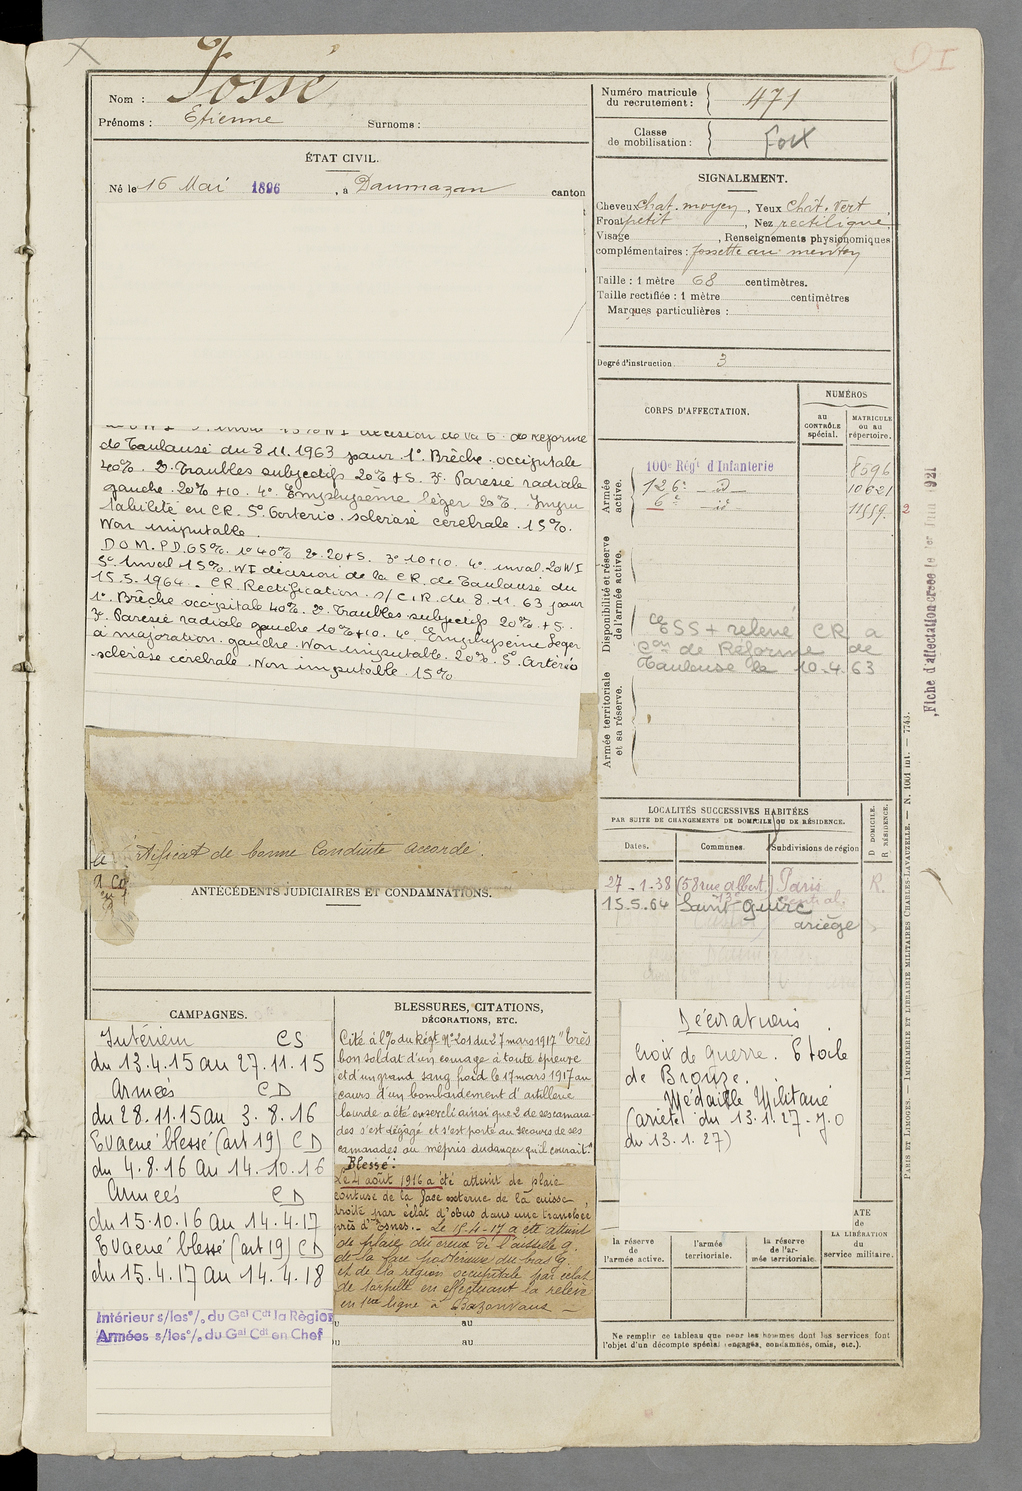 DI
Nom : Fossé
Prénoms : Etienne Surnoms :
ÉTAT CIVIL.
Né le 16 Mai 1896, à Daumazan canton
de Toulouse du 8.11.1963 pour 1º. Brêche occipitale
40%. 2º. Troubles subjectifs 20% +5. 3º. Paresie radiale
gauche 20% +10. 4º. Emphysème léger 20%. Impu
tabilité en CR. 5º. Cortério. sclérose cérébrale. 15%.
Non imputable.
D O M. P.D. 65%. 1º 40% 2º. 20+5. 3º 10+10. 4º inval. 20 NI
5º. Inval 15%. NI décision de la CR. de Toulouse du
15.5.1964. CR. Rectification. s/ C.I.R. du 8.11.63 pour
1º. Brêche occipitale 40%. 2º. Troubles subjectifs 20% +5.
3º. Paresie radiale gauche 10%+10. 4º Emphysème Leger
à majoration gauche. Non imputable. 20%. 5º. Artério
sclérose cérébrale. Non imputable. 15%
Certificat de bonne Conduite accordé.
ANTÉCÉDENTS JUDICIAIRES ET CONDAMNATIONS.
CAMPAGNES.
Intérieur CS
du 13.4.15 au 27.11.15
Armées CD
du 28.11.15 au 3.8.16
Evacué blessé (art 19) CD
du 4.8.16 au 14.10.16
Armées CD
du 15.10.16 au 14.4.17
Evacué blessé (art 19) CD
du 15.4.17 au 14.4.18
Intérieur s/les º/₀ du Gal Cdt la Région
Armées s/les º/₀ du Gal Cdt en Chef
BLESSURES, CITATIONS,
DÉCORATIONS, ETC.
Cité à l'º/₀ du Régt Nº 201 du 27 mars 1917 "Très
bon soldat d'un courage à toute épreuve
et d'un grand sang froid le 17 mars 1917 au
cours d'un bombardement d'artillerie
lourde a été enseveli ainsi que 2 de ses camara-
des s'est dégagé et s'est porté au secours de ses
camarades au mépris du danger qu'il courait."
Blessé :
Le 4 août 1916 a été atteint de plaie
contuse de la face externe de la cuisse
droite par éclat d'obus dans une tranchée
près d'Esnes. Le 15-4-17 a été atteint
de plaie du creux de l'aisselle g.
de la face postérieure du bras g.
et de la région occipitale par éclat
de torpille en effectuant la relève
en 1ère ligne à Bezonvaux
au
au
Numéro matricule
du recrutement : 471
Classe
de mobilisation : Foix
SIGNALEMENT.
Cheveux chat. moyen, Yeux chât. vert
Front petit, Nez rectiligne
Visage , Renseignements physionomiques
complémentaires : fossette au menton
Taille : 1 mètre 68 centimètres.
Taille rectifiée : 1 mètre centimètres
Marques particulières :
Degré d'instruction. 3
CORPS D'AFFECTATION.
NUMÉROS
au CONTRÔLE spécial.
MATRICULE ou au répertoire.
Armée active.
100e Régt d'Infanterie 8596
126e id 10621
6e id 11559.
2
Disponibilité et réserve de l'armée active.
ESS + relevé CR a
Con de Réforme de
Toulouse le 10.4.63
Armée territoriale et sa réserve.
Fiche d'affectation créée le 1er Juin 1921
LOCALITÉS SUCCESSIVES HABITÉES
PAR SUITE DE CHANGEMENTS DE DOMICILE OU DE RÉSIDENCE.
Dates. Communes. Subdivisions de région
D DOMICILE.
R RÉSIDENCE.
27-1-38 (58 rue Albert) Paris R.
13e central.
15.5.64 Saint Quirc
ariège
Décorations
Croix de guerre. Etoile
de Bronze.
Médaille Militaire
(arrêté du 13.1.27-J.O
du 13.1.27)
DATE
DE LA LIBÉRATION
du service militaire.
la réserve de l'armée active.
l'armée territoriale.
la réserve de l'armée territoriale.
Ne remplir ce tableau que pour les hommes dont les services font
l'objet d'un décompte spécial (engagés, condamnés, omis, etc.).
PARIS ET LIMOGES. — IMPRIMERIE ET LIBRAIRIE MILITAIRES CHARLES-LAVAUZELLE. — N. 1001 int. — 7743.